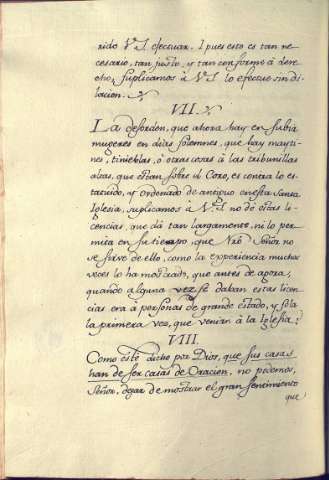 rido V.S. efectuar. I pues esto es tan ne
cesario, tan justo, y tan conforme à dere
cho, suplicamos à V.S. lo efectue sin di
lacion.
VII.
La desorden, que ahora hay en subir
mugeres en dias solemnes, que hay mayti-
nes, tinieblas, ò otras cosas à las tribunillas
altas, que estan sobre el Coro, es contra lo es-
tatuido, y ordenado de antiguo en esta Santa
Iglesia, suplicamos à V.S. no de estas li-
cencias, que dà tan largamente, ni lo per
mita en su tiempo, que Nrõ Señor no
se sirve de ello, como la experiencia muchas
veces lo ha mostrado, que antes de agora,
quando alguna vez se daban estas licen
cias era à personas de grande estado, y sola
la primera vez, que venian à la Iglesia.
VIII.
Como esté dicho por Dios, que sus casas
han de ser casas de Oracion, no podemos,
Señor, dejar de mostrar el gran sentimiento
que